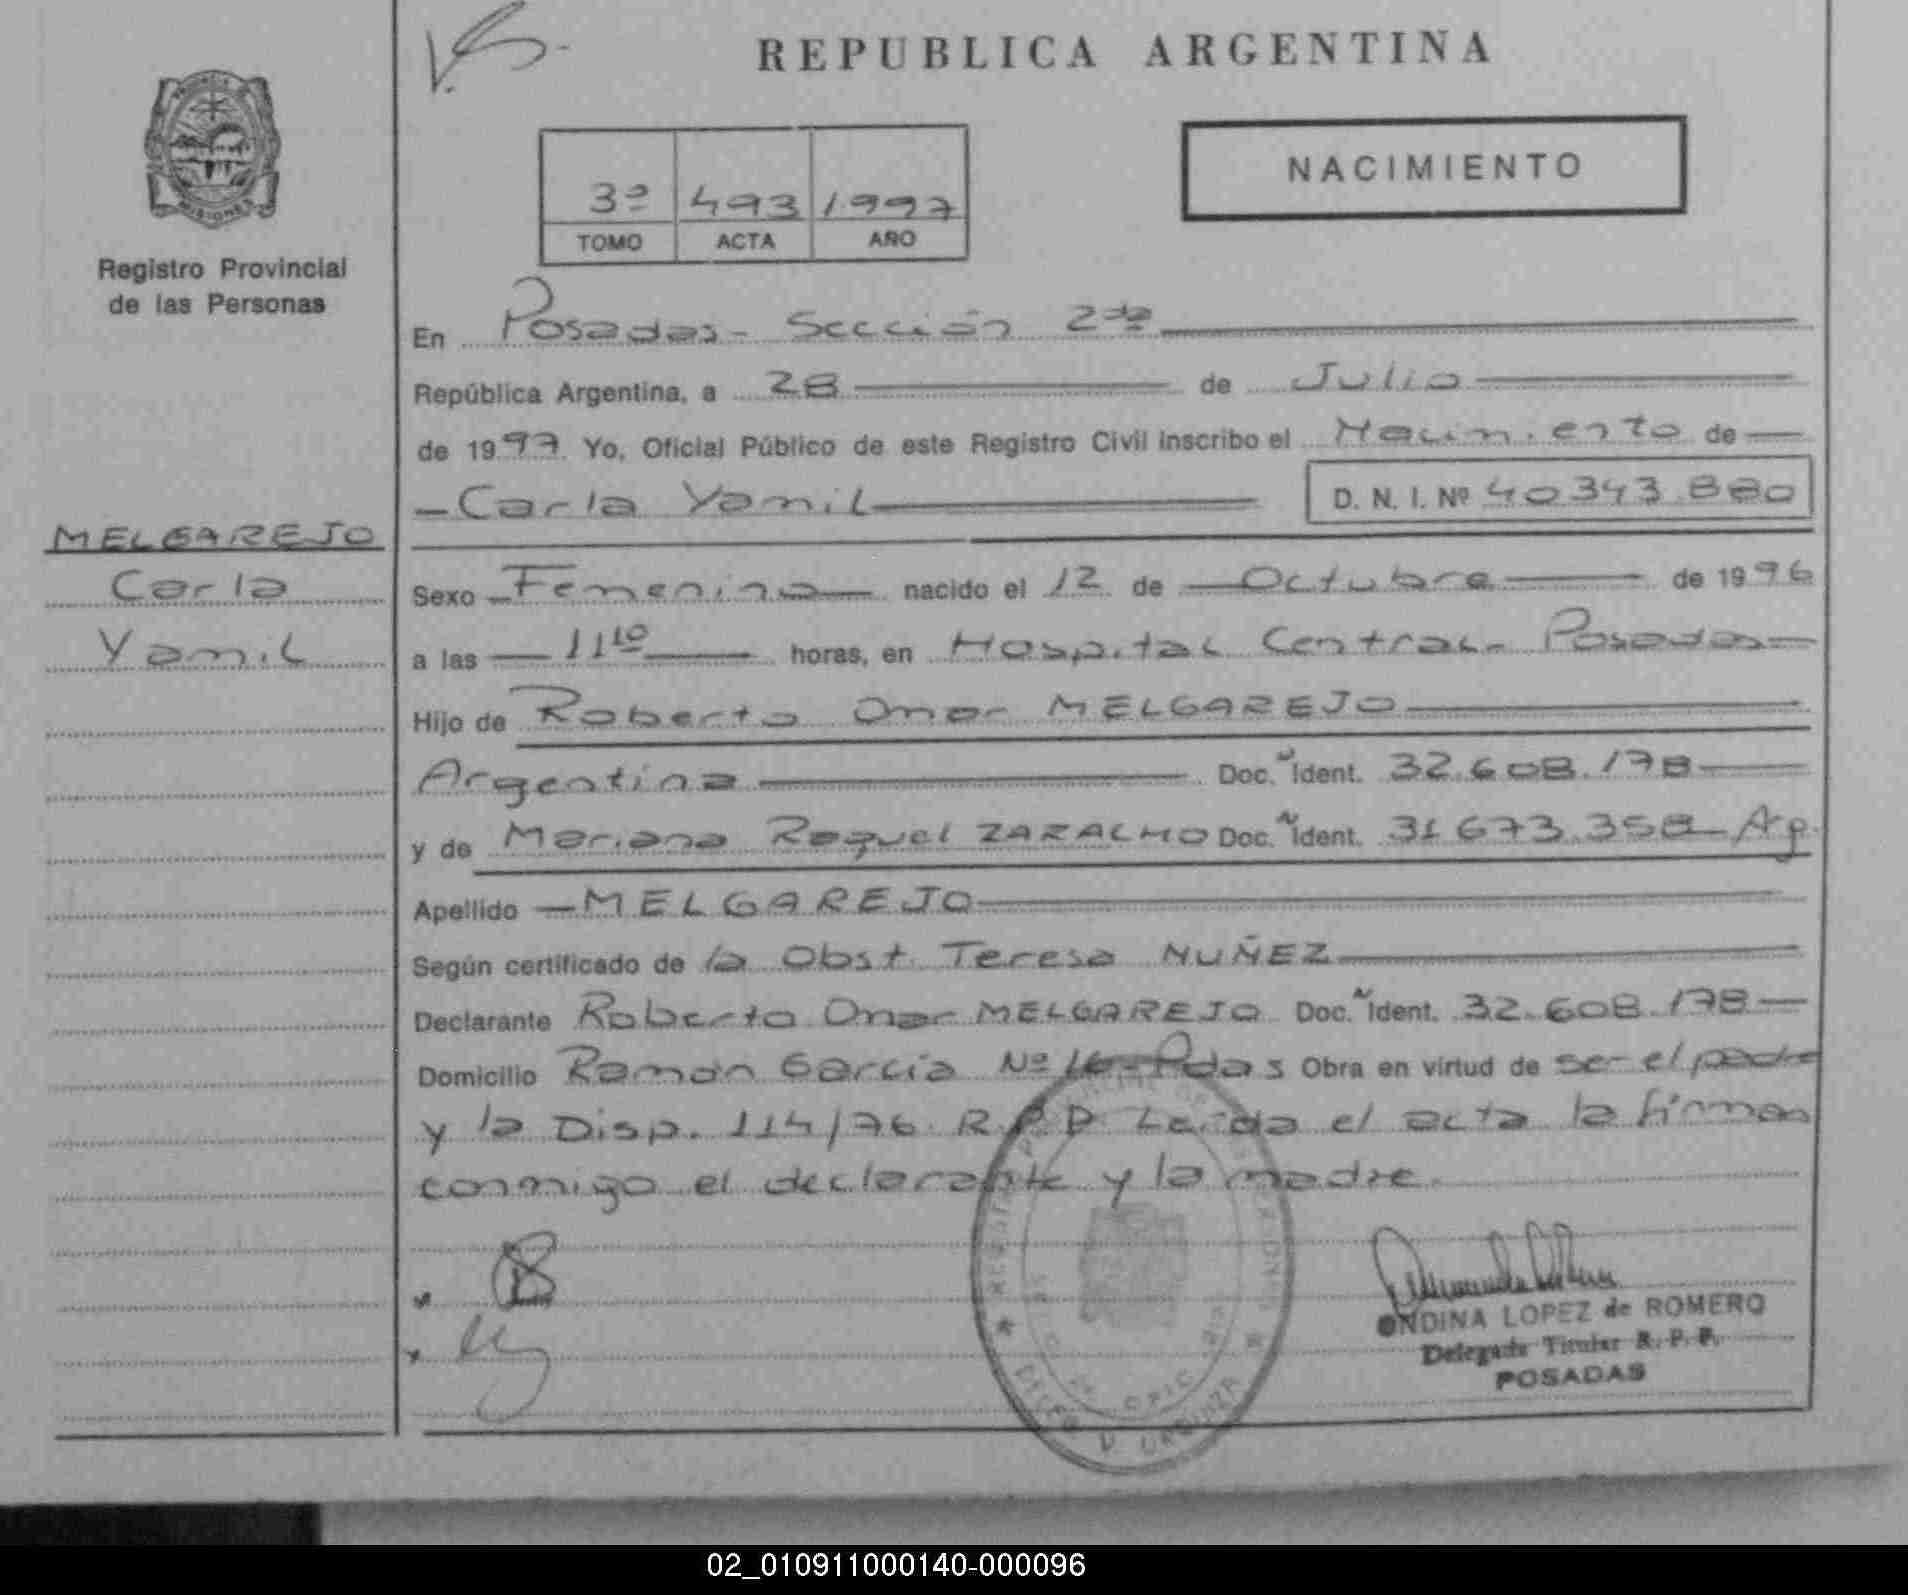 REPUBLICA ARGENTINA
NACIMIENTO
3º 493 1997
TOMO ACTA AÑO
PROVINCIA DE MISIONES
Registro Provincial
de las Personas
En Posadas - Sección 2da
República Argentina, a 28 de Julio
de 1997 Yo, Oficial Público de este Registro Civil inscribo el Nacimiento de
Carla Yamil D. N. I. Nº 40 343 880
MELGAREJO
Carla
Yamil
Sexo Femenino nacido el 12 de Octubre de 1996
a las 11 10 horas, en Hospital Central - Posadas
Hijo de Roberto Omar MELGAREJO
Argentina Doc. Ident. 32.608.178
y de Mariana Raquel ZARACHO Doc. Ident. 31 673 358 Arg.
Apellido MELGAREJO
Según certificado de la Obst. Teresa NUÑEZ
Declarante Roberto Omar MELGAREJO Doc. Ident. 32.608.178
Domicilio Ramón García Nº 16 - Pdas Obra en virtud de ser el padre
y la Disp. 114/76 R.P.P. Leída el acta la firman
conmigo el declarante y la madre.
ONDINA LOPEZ de ROMERO
Delegada Titular R. P. P.
POSADAS
02_010911000140-000096